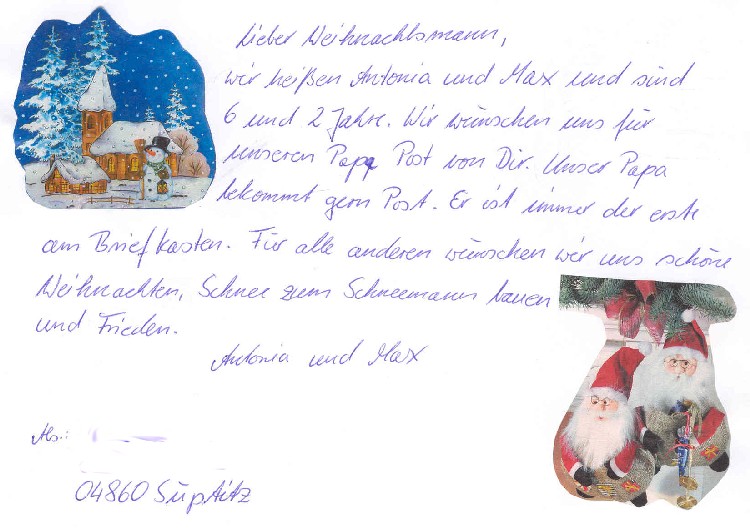 Lieber Weihnachtsmann,
wir heißen Antonia und Max und sind
6 und 2 Jahre. Wir wünschen uns für
unseren Papa Post von Dir. Unser Papa
bekommt gern Post. Er ist immer der erste
am Briefkasten. Für alle anderen wünschen wir uns schöne
Weihnachten, Schnee zum Schneemann bauen
und Frieden.
Antonia und Max
Abs.:
04860 Süptitz